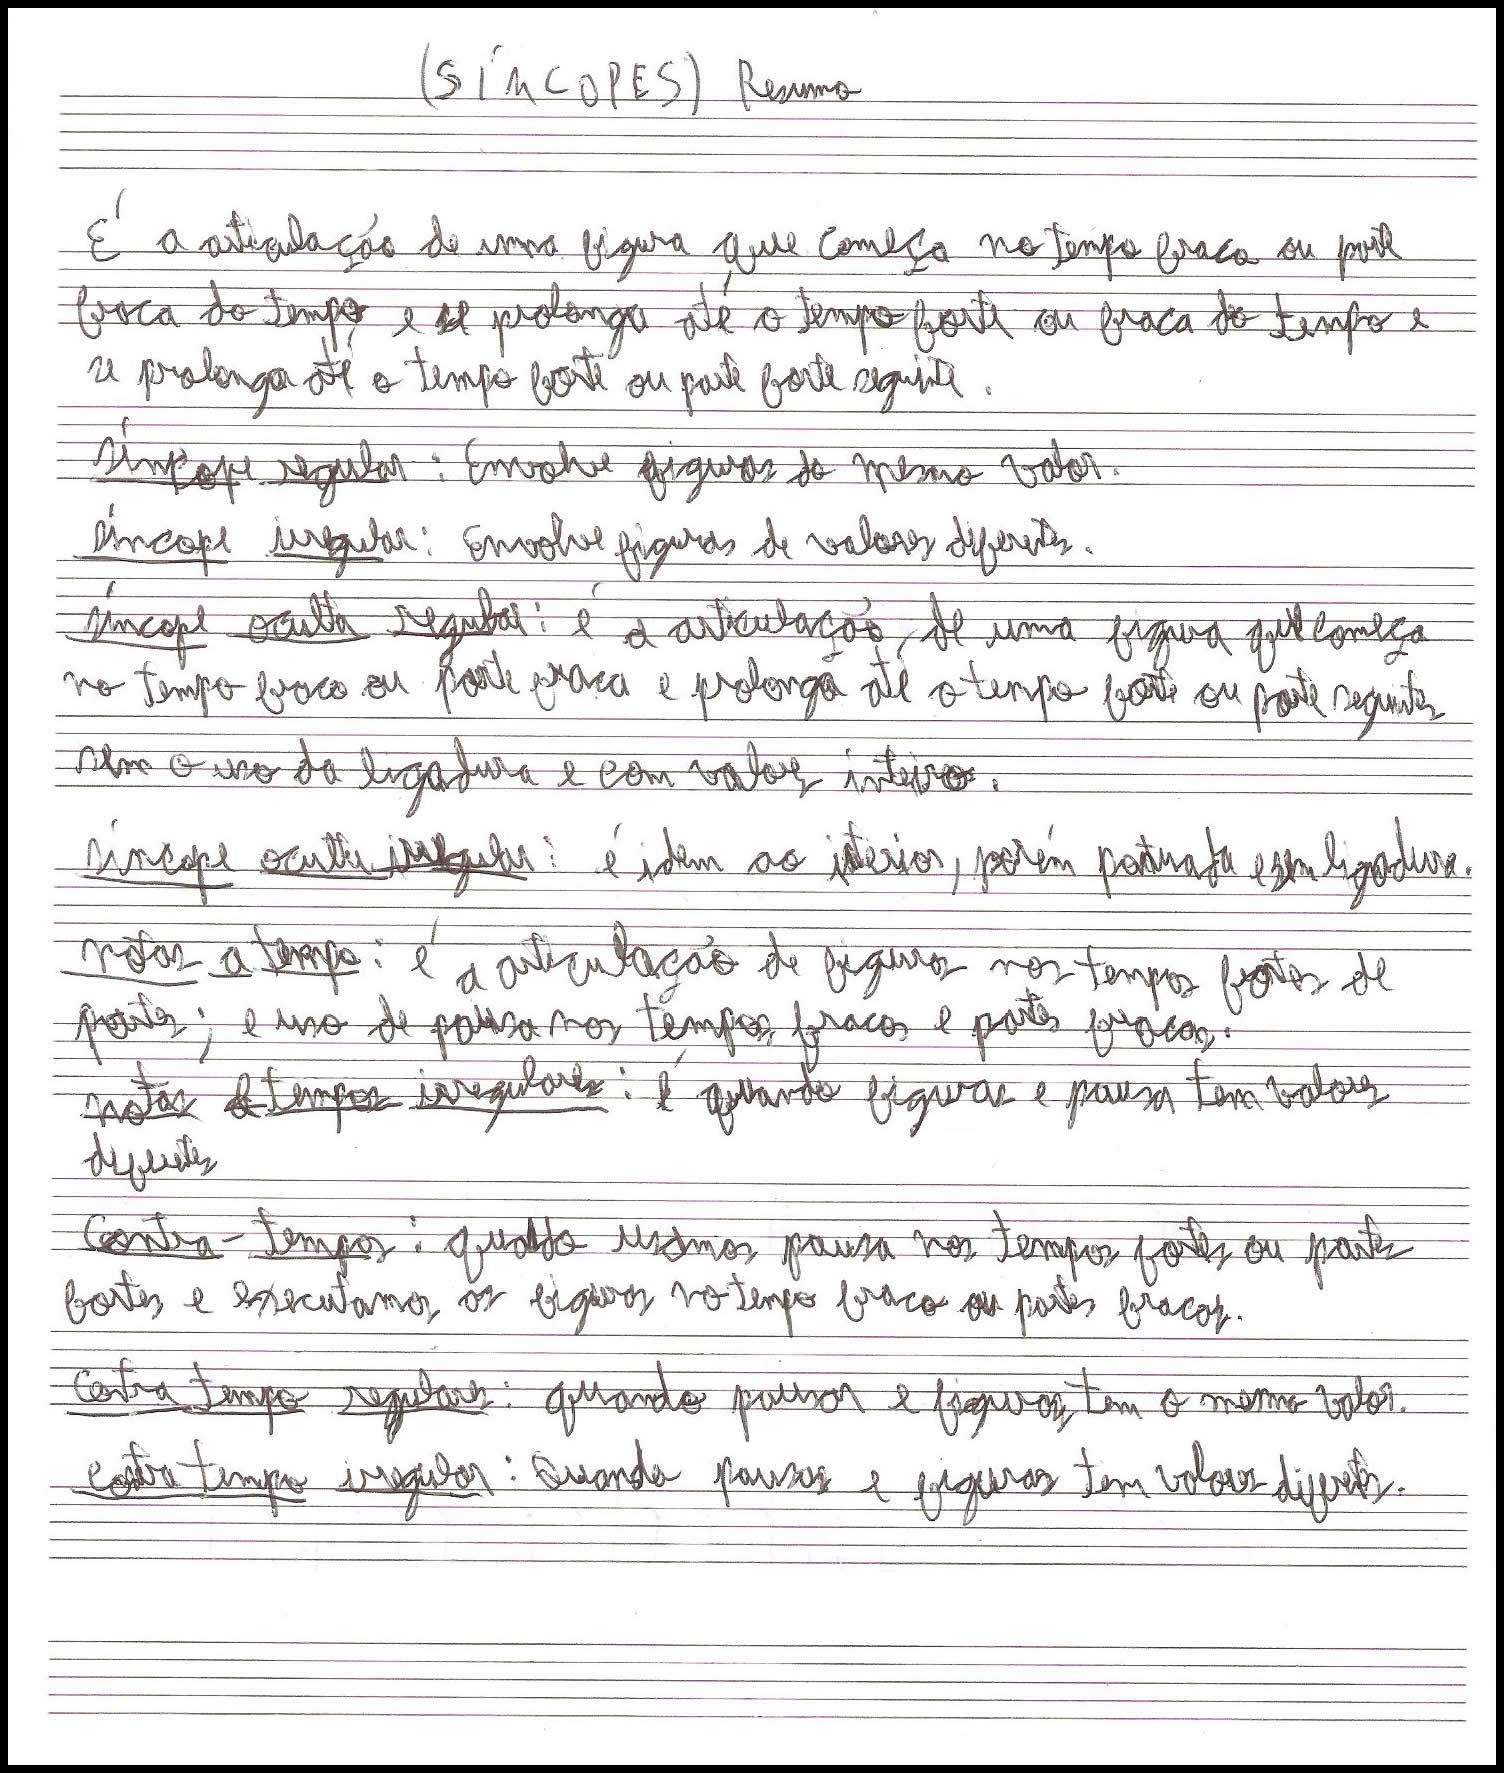 (SÍNCOPES) Resumo
É a articulação de uma figura que começa no tempo fraco ou parte
fraca do tempo e se prolonga até o tempo forte ou fraca do tempo e
se prolonga até o tempo forte ou parte forte seguinte.
síncope regular: Envolve figuras do mesmo valor.
síncope irregular: Envolve figuras de valores diferentes.
síncope oculta regular: é a articulação de uma figura que começa
no tempo fraco ou parte fraca e prolonga até o tempo forte ou parte seguintes
sem o uso da ligadura e com valores inteiro.
síncope oculta irregular: é idem ao interior, porém pontuada e sem ligadura.
notas a tempo: é a articulação de figuras nos tempos fortes de
partes; e uso de pausa nos tempos fracos e partes fracas.
notas tempos irregulares: é quando figuras e pausa tem valores
diferentes
Contra-tempos: quando usamos pausa nos tempos fortes ou partes
fortes e executamos as figuras no tempo fraco ou partes fracas.
Contra tempo regulares: quando pausas e figuras tem o mesmo valor.
contra tempo irregular: Quando pausas e figuras tem valores diferentes.